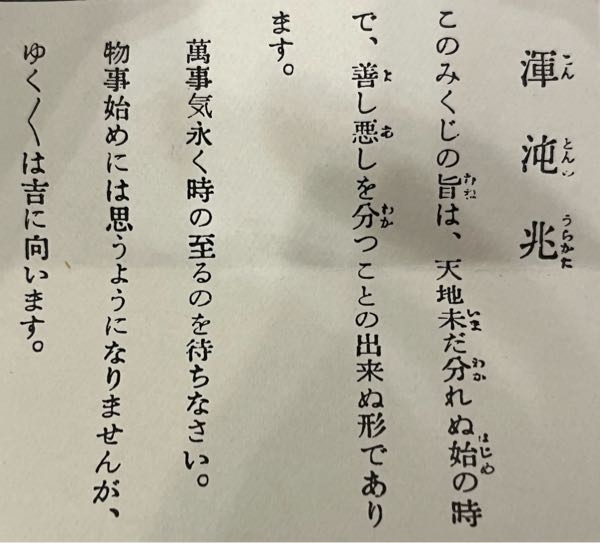 渾沌兆
このみくじの旨は、天地未だ分れぬ始の時
で、善し悪しを分つことの出来ぬ形であり
ます。
萬事気永く時の至るのを待ちなさい。
物事始めには思うようになりませんが、
ゆく〳〵は吉に向います。